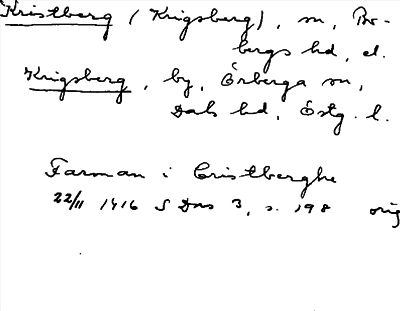 Kristberg (Krigsberg), sn, Bo-
bergs hd, el.
Krigsberg, by, Örberga sn,
Dals hd, Östg. l.
Farman i Cristberghe
22/11 1416 SDns 3, s. 198 orig